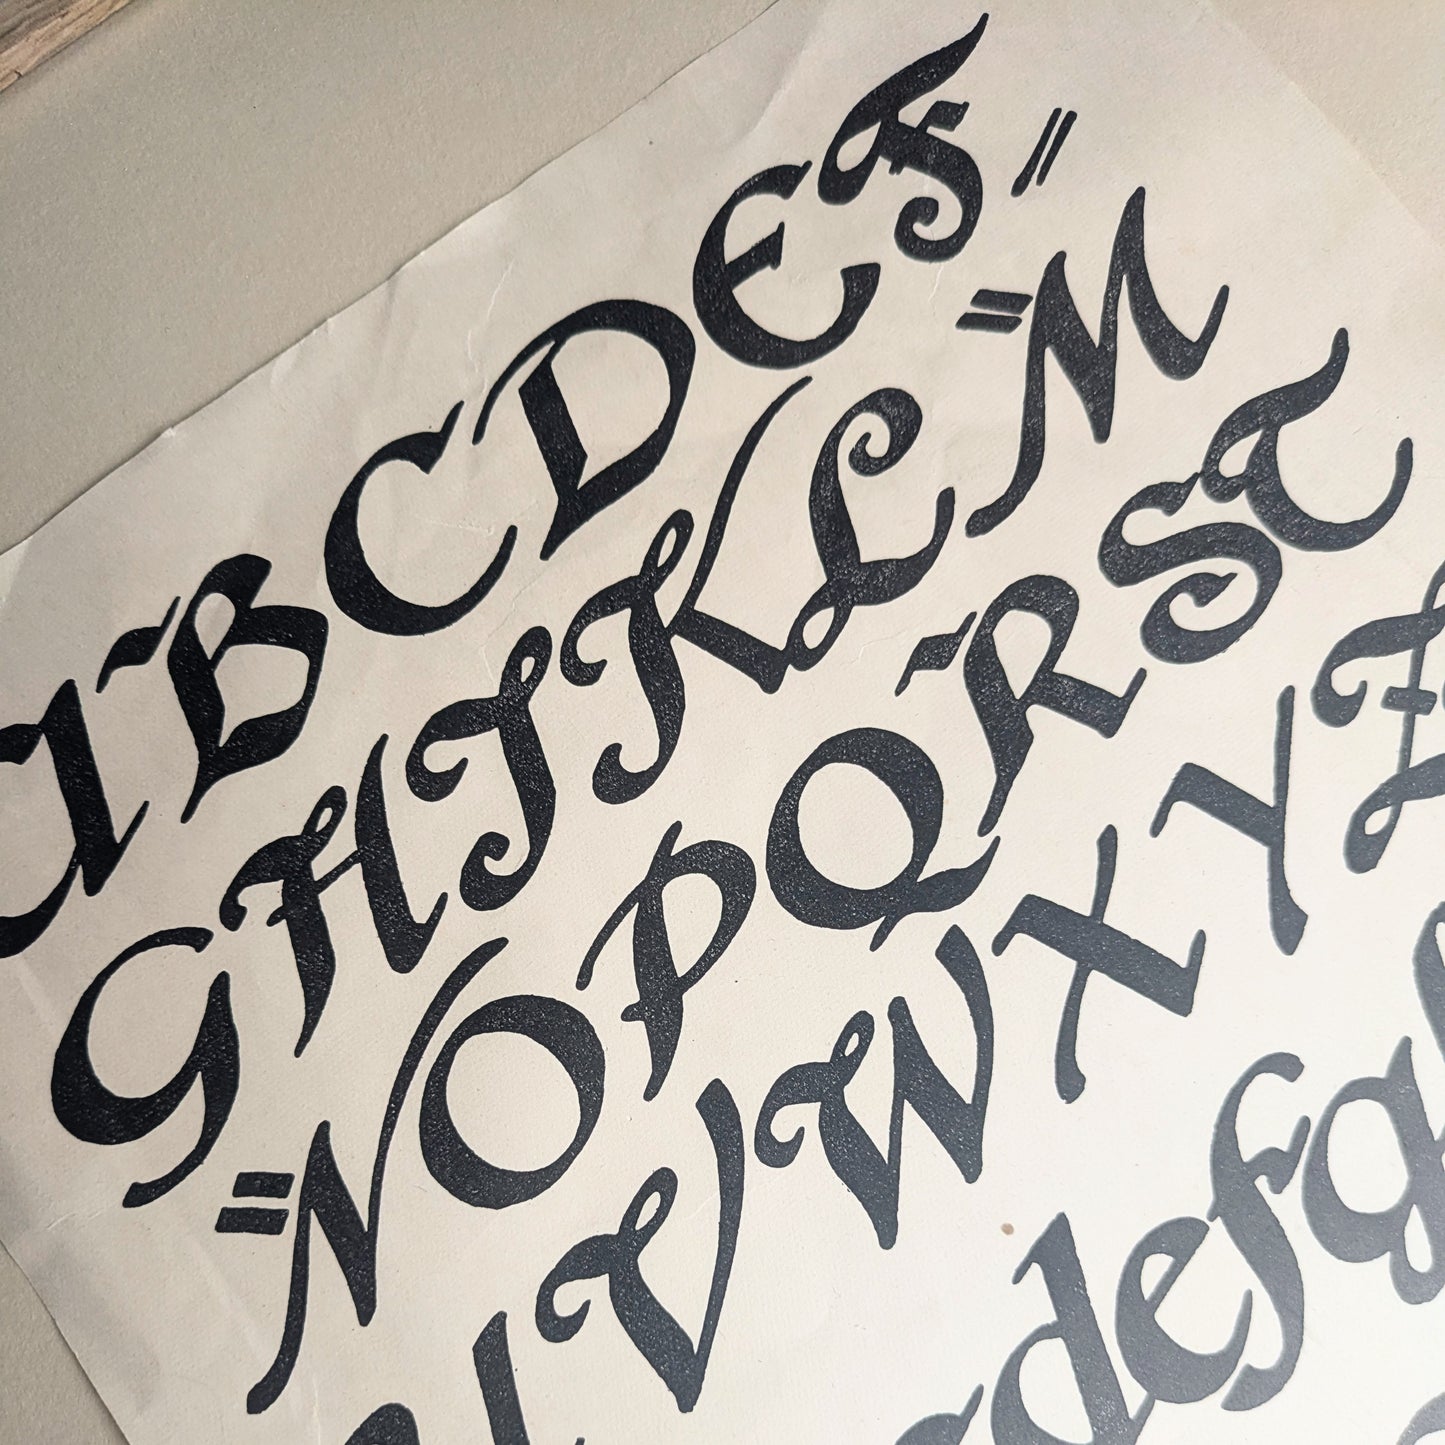 ABCDEF=
GHIKL=M
=NOPQRST
UVWXYZ
cdefg